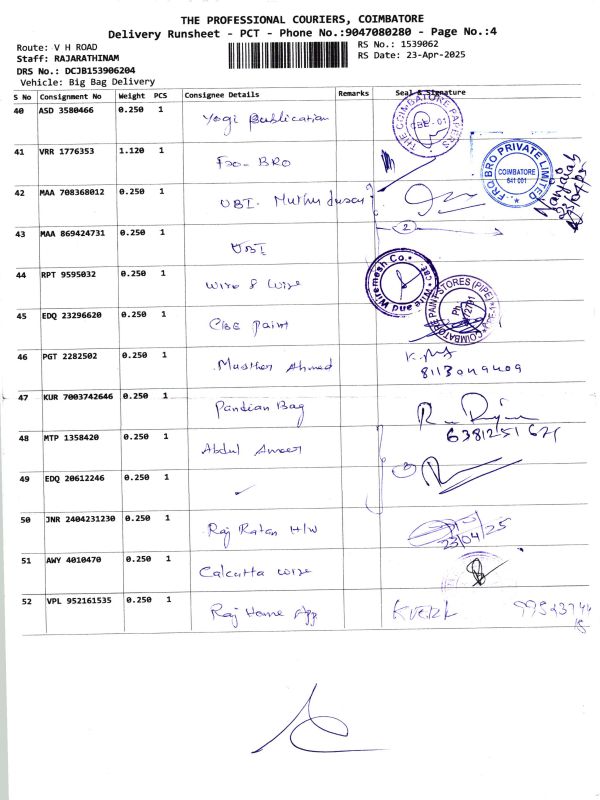 THE PROFESSIONAL COURIERS, COIMBATORE
Delivery Runsheet - PCT - Phone No.:9047080280 - Page No.:4
Route: V H ROAD RS No.: 1539062
Staff: RAJARATHINAM RS Date: 23-Apr-2025
DRS No.: DCJB153906204
Vehicle: Big Bag Delivery
S No Consignment No Weight PCS Consignee Details Remarks Seal & Signature
40 ASD 3580466 0.250 1 Yogi Publication
THE COIMBATORE PAPERS
CBE - 01
41 VRR 1776353 1.120 1 Fro- BRO
FRO BRO PRIVATE LIMITED
COIMBATORE
641 001
42 MAA 708368012 0.250 1 UBI-
2
43 MAA 869424731 0.250 1 UBI
44 RPT 9595032 0.250 1 Wire & Wire
Wiremesh Co. CBE.
45 EDQ 23296620 0.250 1 CBE Paint
COIMBATORE PAINT STORES (PIPE)
46 PGT 2282502 0.250 1 Ahmed
47 KUR 7003742646 0.250 1 Pandian Bag
48 MTP 1358420 0.250 1 Abdul Ameer
49 EDQ 20612246 0.250 1
50 JNR 2404231230 0.250 1 Raj Ratan H/W
23/04/25
51 AWY 4010470 0.250 1 Calcutta Wire
52 VPL 952161535 0.250 1 Raj Home App